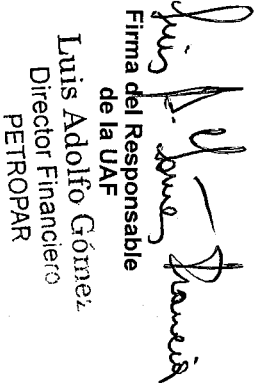 Luis A. Gómez
Firma del Responsable
de la UAF
Luis Adolfo Gómez
Director Financiero
PETROPAR